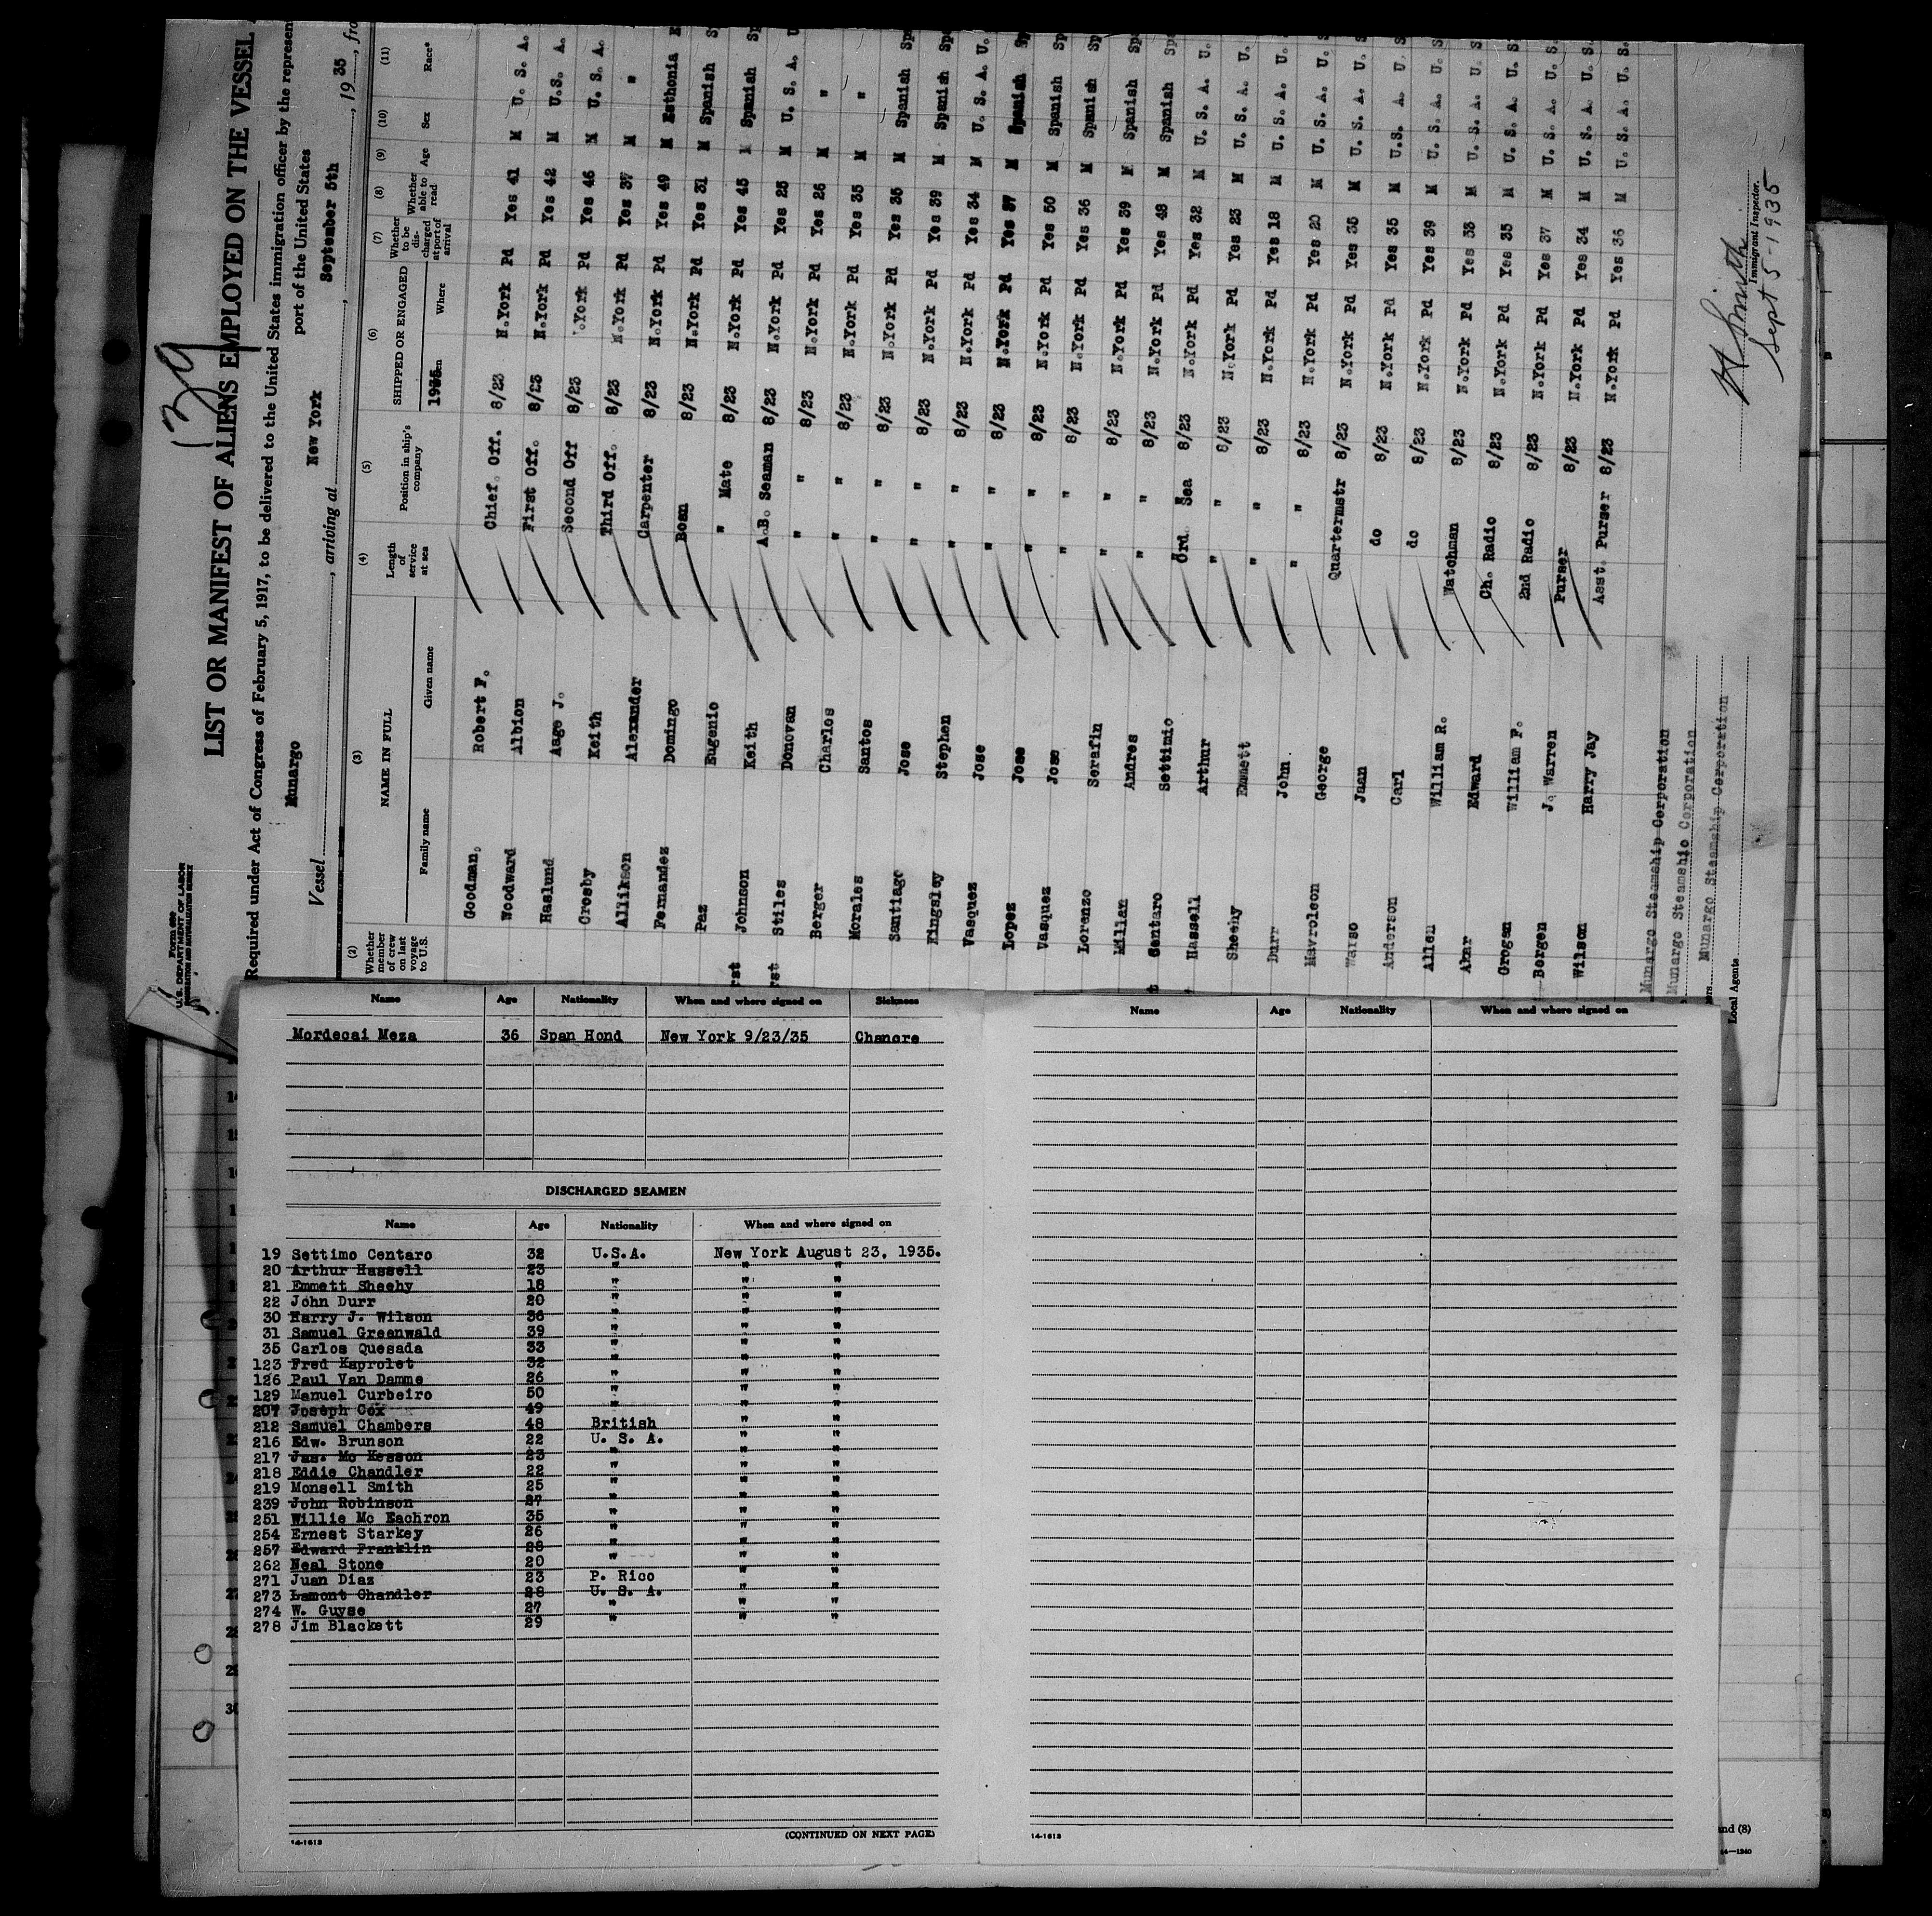 139
Form 689
U.S. DEPARTMENT OF LABOR
IMMIGRATION AND NATURALIZATION SERVICE
LIST OR MANIFEST OF ALIENS EMPLOYED ON THE VESSEL
Required under Act of Congress of February 5, 1917, to be delivered to the United States immigration officer by the represen
port of the United States
Vessel Munargo, arriving at New York, September 5th, 1935, fro
(2) (3) (4) (5) (6) (7) (8) (9) (10) (11)
Whether member of crew on last voyage to U.S. NAME IN FULL Length of service at sea Position in ship's company SHIPPED OR ENGAGED Whether to be discharged at port of arrival Whether able to read Age Sex Race*
Family name Given name 1935 Where
Goodman. Robert F. Chief. Off. 8/23 N.York Pd Yes 41 M U. S. A.
Woodward Albion First Off. 8/23 N.York Pd Yes 42 M U.S. A.
Haslund Aage J. Second Off 8/23 N.York Pd Yes 46 M U. S. A.
Crosby Keith Third Off. 8/23 N.York Pd Yes 37 M "
Allikson Alexander Carpenter 8/23 N.York Pd Yes 49 M Esthonia E
Fernandez Domingo Bosn 8/23 N.York Pd Yes 31 M Spanish S
Paz Eugenio " Mate 8/23 N.York Pd Yes 45 M Spanish Sp
rst Johnson Keith A.B. Seaman 8/23 N.York Pd Yes 25 M U. S. A. U
rst Stiles Donovan " " 8/23 N.York Pd Yes 26 M "
Berger Charles " " 8/23 N.York Pd Yes 35 M "
Morales Santos " " 8/23 N.York Pd Yes 35 M Spanish Sp
Santiago Jose " " 8/23 N.York Pd Yes 39 M Spanish Sp
Kingsley Stephen " " 8/23 N.York Pd Yes 34 M U. S. A. U.
Vasquez Jose " " 8/23 N.York Pd Yes 37 M Spanish Sp
Lopez Jose " " 8/23 N.York Pd Yes 50 M Spanish Sp
Vasquez Jose " " 8/23 N.York Pd Yes 36 M Spanish Sp
Lorenzo Serafin " " 8/23 N.York Pd Yes 39 M Spanish Sp
Millan Andres " " 8/23 N.York Pd Yes 48 M Spanish Spa
t Centaro Settimio Ord. Sea 8/23 N.York Pd Yes 32 M U. S. A. U.
Hassell Arthur " " 8/23 N.York Pd Yes 23 M U. S. A. U.
Sheehy Emmett " " 8/23 N.York Pd Yes 18 M U. S. A. U.
Durr John " " 8/23 N.York Pd Yes 20 M U. S. A. U. S
Mavroleon George Quartermstr 8/23 N.York Pd Yes 35 M U. S. A. U. S
Jaan do 8/23 N.York Pd Yes 35 M U.S. A. U. S
Anderson Carl do 8/23 N.York Pd Yes 39 M U. S. A. U. S
Allen William R. Watchman 8/23 N.York Pd Yes 33 M U. S. A. U. S
Edward Ch. Radio 8/23 N.York Pd Yes 35 M U. S. A. U. S
Grogan William F. 2nd Radio 8/23 N.York Pd Yes 37 M U. S. A. U. S.
Bergen J. Warren Purser 8/23 N.York Pd Yes 34 M U. S. A. U. S.
Wilson Harry Jay Asst. Purser 8/23 N.York Pd Yes 36 M U. S. A. U. S.
Munargo Steamship Corporation
Munargo Steamship Corporation
Munargo Steamship Corporation
Local Agents
Smith
Immigrant Inspector.
Sept 5-1935
Name Age Nationality When and where signed on Sickness
Mordecai Meza 36 Span Hond New York 9/23/35 Chancre
DISCHARGED SEAMEN
Name Age Nationality When and where signed on
19 Settimo Centaro 32 U.S.A. New York August 23, 1935.
20 Arthur Hassell 23 " " "
21 Emmett Sheehy 18 " " "
22 John Durr 20 " " "
30 Harry J. Wilson 36 " " "
31 Samuel Greenwald 39 " " "
35 Carlos Quesada 33 " " "
123 Fred Kaprolet 32 " " "
126 Paul Van Damme 26 " " "
129 Manuel Curbeiro 50 " " "
207 Joseph Cox 49 " " "
212 Samuel Chambers 48 British " "
216 Edw. Brunson 22 U. S. A. " "
217 Jas. Mc Kesson 23 " " "
218 Eddie Chandler 22 " " "
219 Monsell Smith 25 " " "
239 John Robinson 27 " " "
251 Willie Mc Eachron 35 " " "
254 Ernest Starkey 26 " " "
257 Edward Franklin 28 " " "
262 Neal Stone 20 " " "
271 Juan Diaz 23 P. Rico " "
273 Lamont Chandler 28 U. S. A. " "
274 W. Guyse 27 " " "
278 Jim Blackett 29 " " "
14-1613
(CONTINUED ON NEXT PAGE)
Name Age Nationality When and where signed on
14-1613
and (8)
14—1240